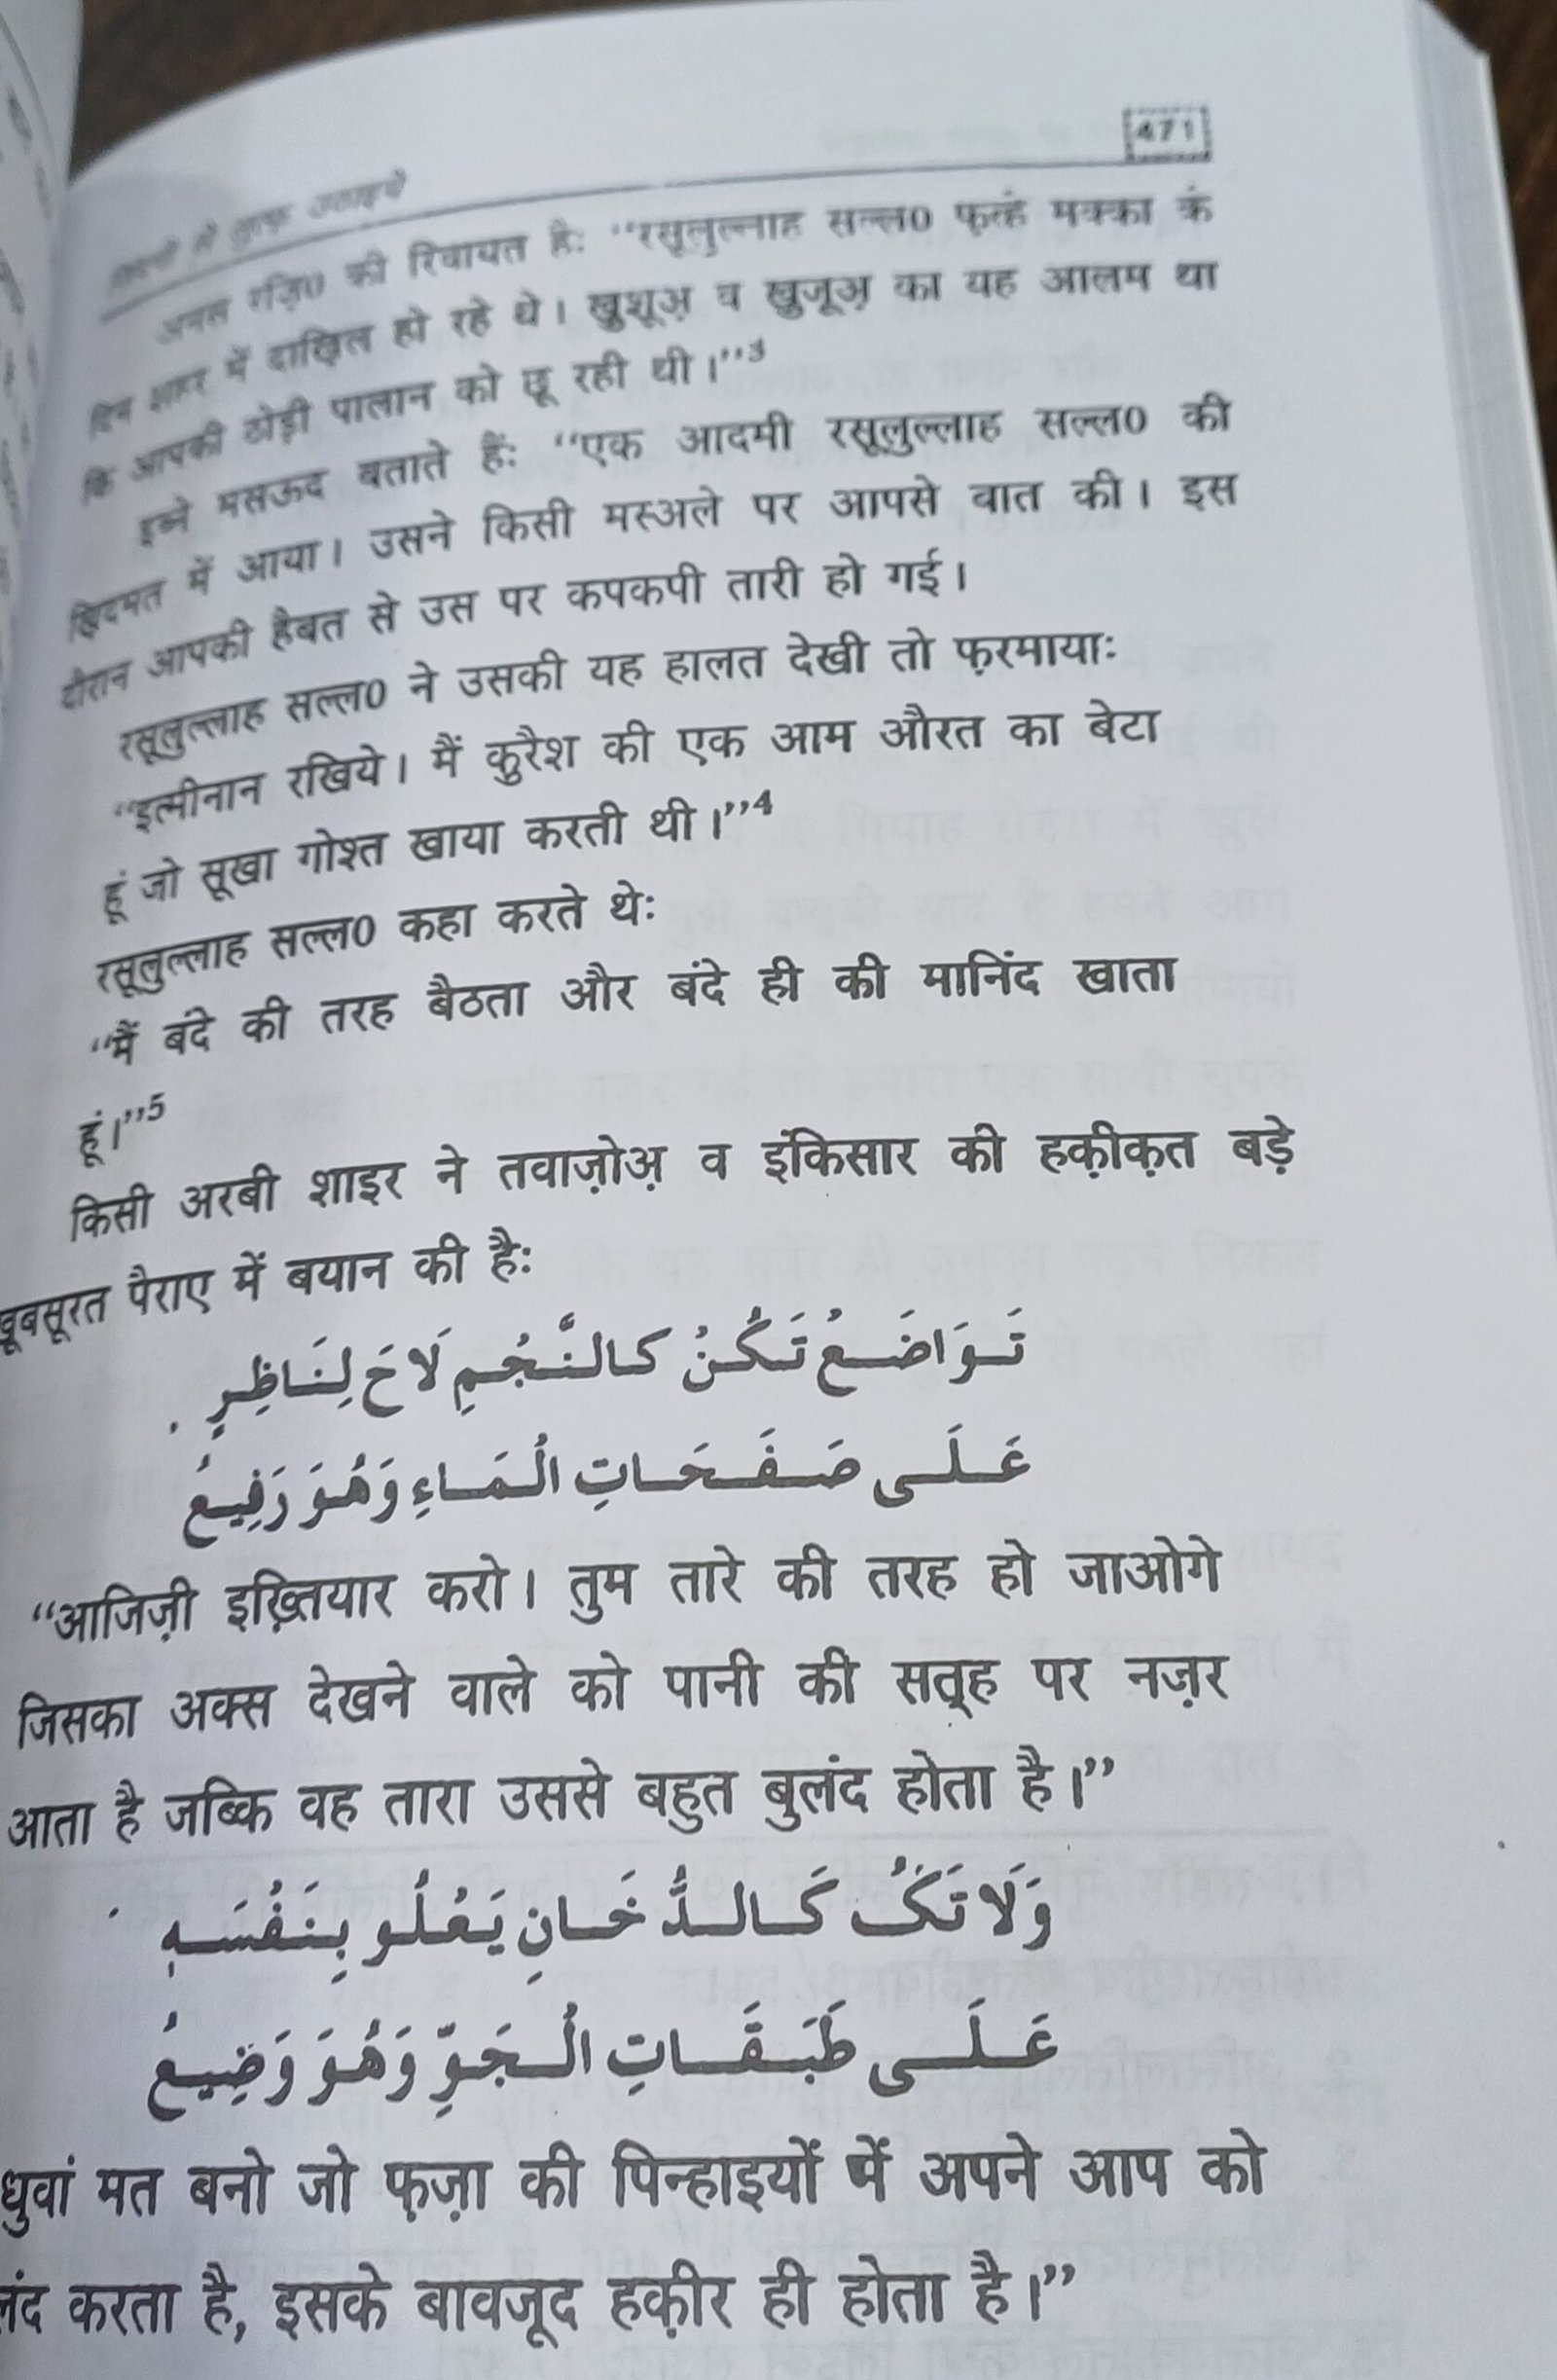 471
से लुत्फ़ उठाइये
अनस रज़ि0 की रिवायत है: “रसूलुल्लाह सल्ल0 फ़त्हे मक्का के
दिन शहर में दाख़िल हो रहे थे। ख़ुशूअ़ व ख़ुज़ूअ़ का यह आलम था
कि आपकी ठोड़ी पालान को छू रही थी।”3
इब्ने मसऊद बताते हैं: “एक आदमी रसूलुल्लाह सल्ल0 की
ख़िदमत में आया। उसने किसी मस्अले पर आपसे बात की। इस
दौरान आपकी हैबत से उस पर कपकपी तारी हो गई।
रसूलुल्लाह सल्ल0 ने उसकी यह हालत देखी तो फ़रमाया:
“इत्मीनान रखिये। मैं क़ुरैश की एक आम औरत का बेटा
हूं जो सूखा गोश्त खाया करती थी।”4
रसूलुल्लाह सल्ल0 कहा करते थे:
“मैं बंदे की तरह बैठता और बंदे ही की मानिंद खाता
हूं।”5
किसी अरबी शाइर ने तवाज़ोअ़ व इंकिसार की हक़ीक़त बड़े
ख़ूबसूरत पैराए में बयान की है:
تَوَاضَعُ تَكُنُ كالنَّجُمِ لَاحَ لِنَاظِرٍ
عَلَى صَفَحَاتِ الُمَاءِ وَهُوَ رَفِيعُ
“आजिज़ी इख़्तियार करो। तुम तारे की तरह हो जाओगे
जिसका अक्स देखने वाले को पानी की सत़्ह पर नज़र
आता है जब्कि वह तारा उससे बहुत बुलंद होता है।”
وَلَا تَكُ كَالدُّخَانِ يَعُلُو بِنَفُسَهٖ
عَلَى طَبَقَاتِ الُجَوِّ وَهُوَ وَضِيعُ
धुवां मत बनो जो फ़ज़ा की पिन्हाइयों में अपने आप को
लंद करता है, इसके बावजूद हक़ीर ही होता है।”